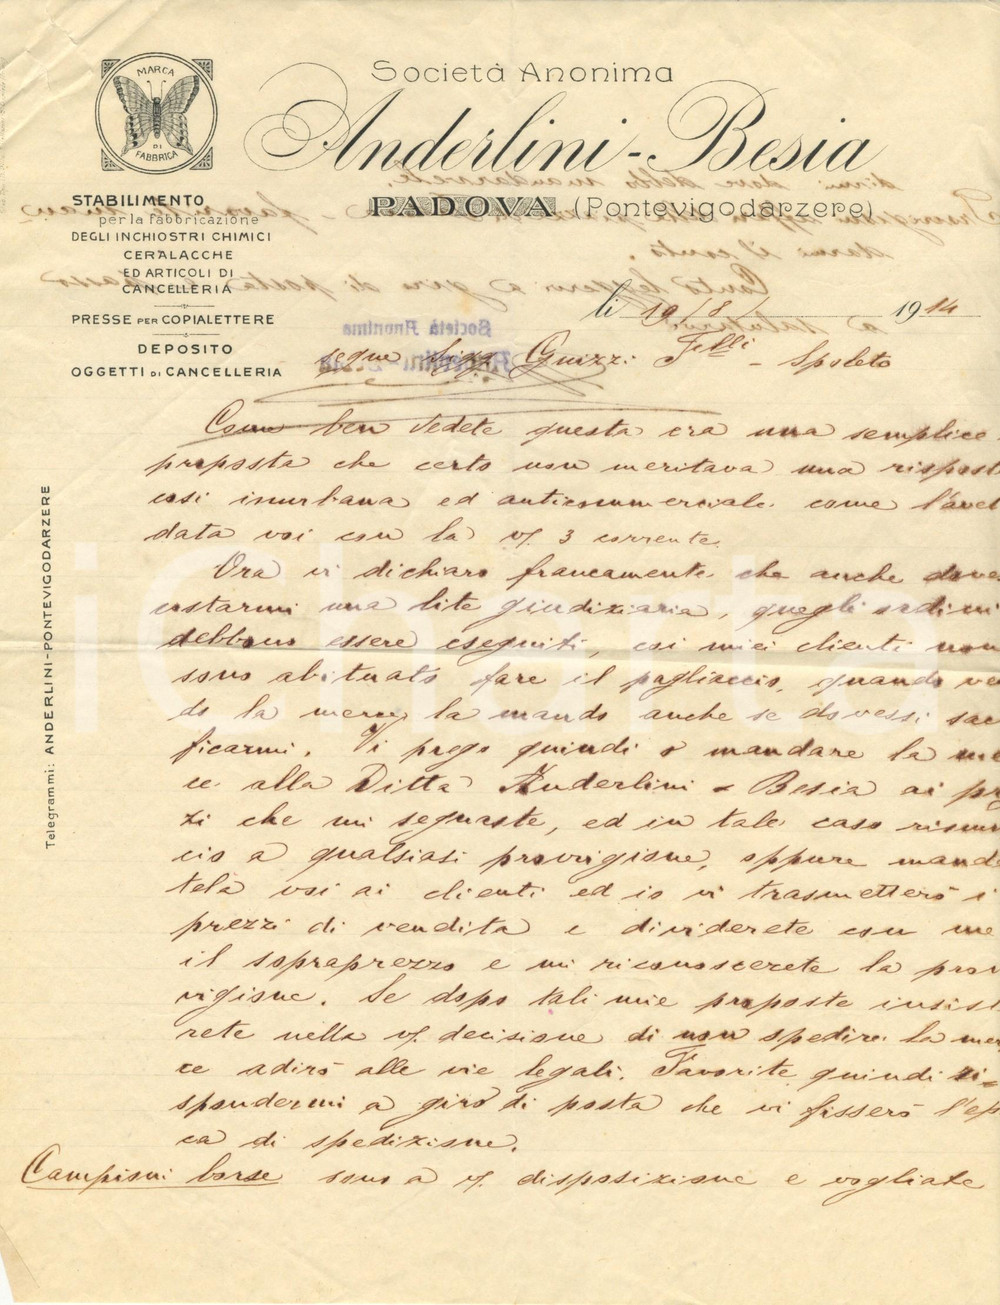 MARCA
DI
FABBRICA
Società Anonima
Anderlini-Besia
PADOVA (Pontevigodarzere)
STABILIMENTO
per la fabbricazione
DEGLI INCHIOSTRI CHIMICI
CERALACCHE
ED ARTICOLI DI
CANCELLERIA
PRESSE PER COPIALETTERE
DEPOSITO
OGGETTI DI CANCELLERIA
Telegrammi: ANDERLINI-PONTEVIGODARZERE
li 19/8/ 1914
segue Sigg. Guizzi Felli - Spoleto
Come ben vedete questa era una semplice
proposta che certo non meritava una rispost
così inurbana ed anticommerciale come l'avet
data voi con la v/ 3 corrente.
Ora vi dichiaro francamente che anche dove
costarmi una lite giudiziaria, quegli ordini
debbono essere eseguiti, coi miei clienti non
sono abituato fare il pagliaccio, quando ven
do la merce la mando anche se dovessi sac
ficarmi. Vi prego quindi o mandare la me
ce alla Ditta Anderlini & Besia ai pr
zi che mi segnaste, ed in tale caso rinun
cio a qualsiasi provvigione, oppure manda
tela voi ai clienti ed io vi trasmetterò i
prezzi di vendita e dividerete con me
il sopraprezzo e mi riconoscerete la prov
vigione. Se dopo tali mie proposte insist
rete nella v/ decisione di non spedire la mer
ce adirò alle vie legali. Favorite quindi ri=
spondermi a giro di posta che vi fisserò l'ep
ca di spedizione.
Campioni borse sono a v/ disposizione e vogliate
iCharta